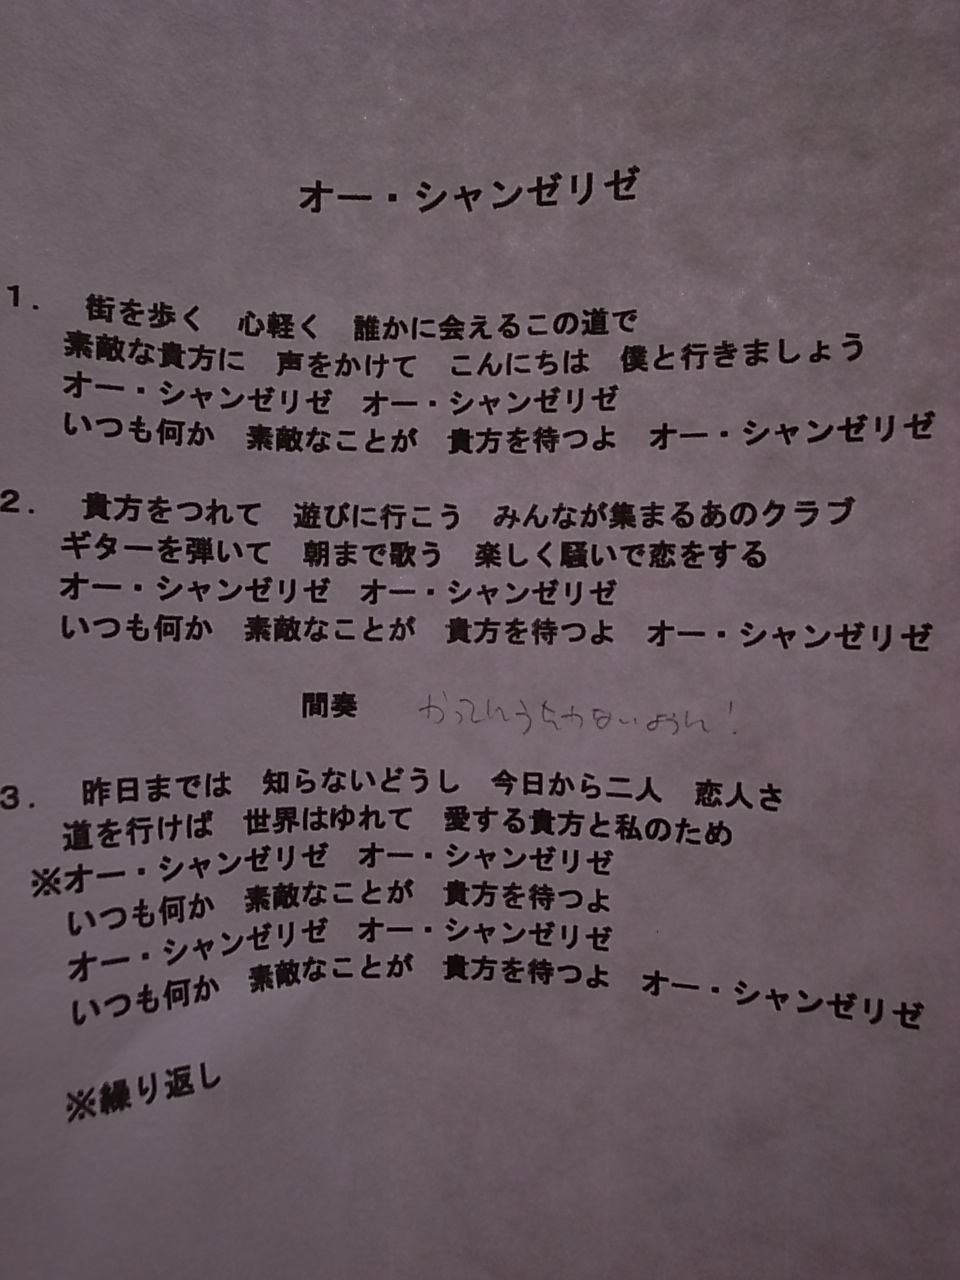 オー・シャンゼリゼ
1. 街を歩く 心軽く 誰かに会えるこの道で
素敵な貴方に 声をかけて こんにちは 僕と行きましょう
オー・シャンゼリゼ オー・シャンゼリゼ
いつも何か 素敵なことが 貴方を待つよ オー・シャンゼリゼ
2. 貴方をつれて 遊びに行こう みんなが集まるあのクラブ
ギターを弾いて 朝まで歌う 楽しく騒いで恋をする
オー・シャンゼリゼ オー・シャンゼリゼ
いつも何か 素敵なことが 貴方を待つよ オー・シャンゼリゼ
間奏
3. 昨日までは 知らないどうし 今日から二人 恋人さ
道を行けば 世界はゆれて 愛する貴方と私のため
※オー・シャンゼリゼ オー・シャンゼリゼ
いつも何か 素敵なことが 貴方を待つよ
オー・シャンゼリゼ オー・シャンゼリゼ
いつも何か 素敵なことが 貴方を待つよ オー・シャンゼリゼ
※繰り返し